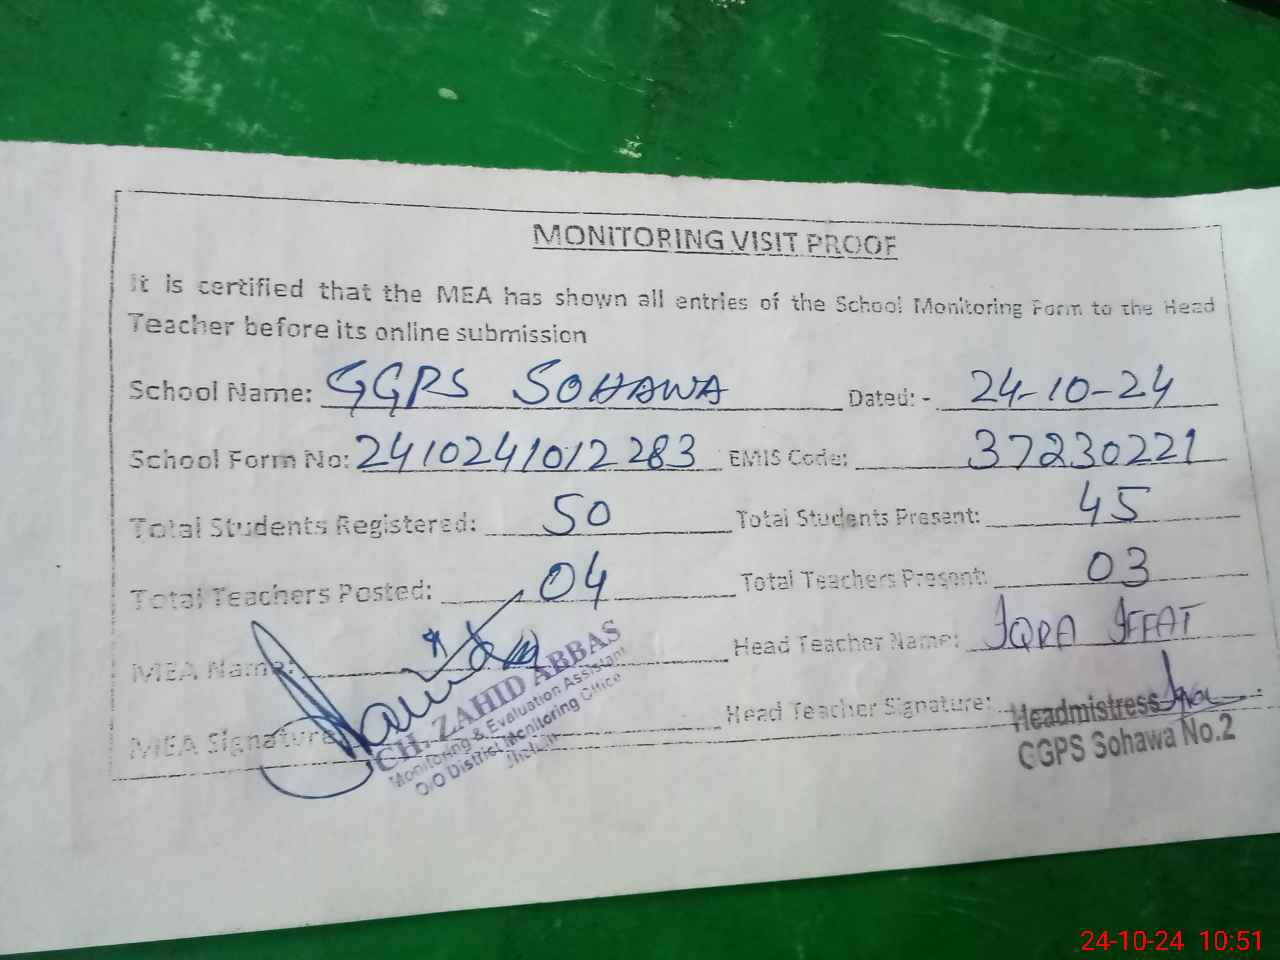 MONITORING VISIT PROOF
It is certified that the MEA has shown all entries of the School Monitoring Form to the Head
Teacher before its online submission
School Name: GGPS SOHAWA Dated: - 24-10-24
School Form No: 2410241012283 EMIS Code: 37230221
Total Students Registered: 50 Total Students Present: 45
Total Teachers Posted: 04 Total Teachers Present: 03
MEA Name: Head Teacher Name: IQRA IFFAT
MEA Signature: Head Teacher Signature:
CH. ZAHID ABBAS
Monitoring & Evaluation Assistant
O/O District Monitoring Office
Jhelum
Headmistress
GGPS Sohawa No.2
24-10-24 10:51